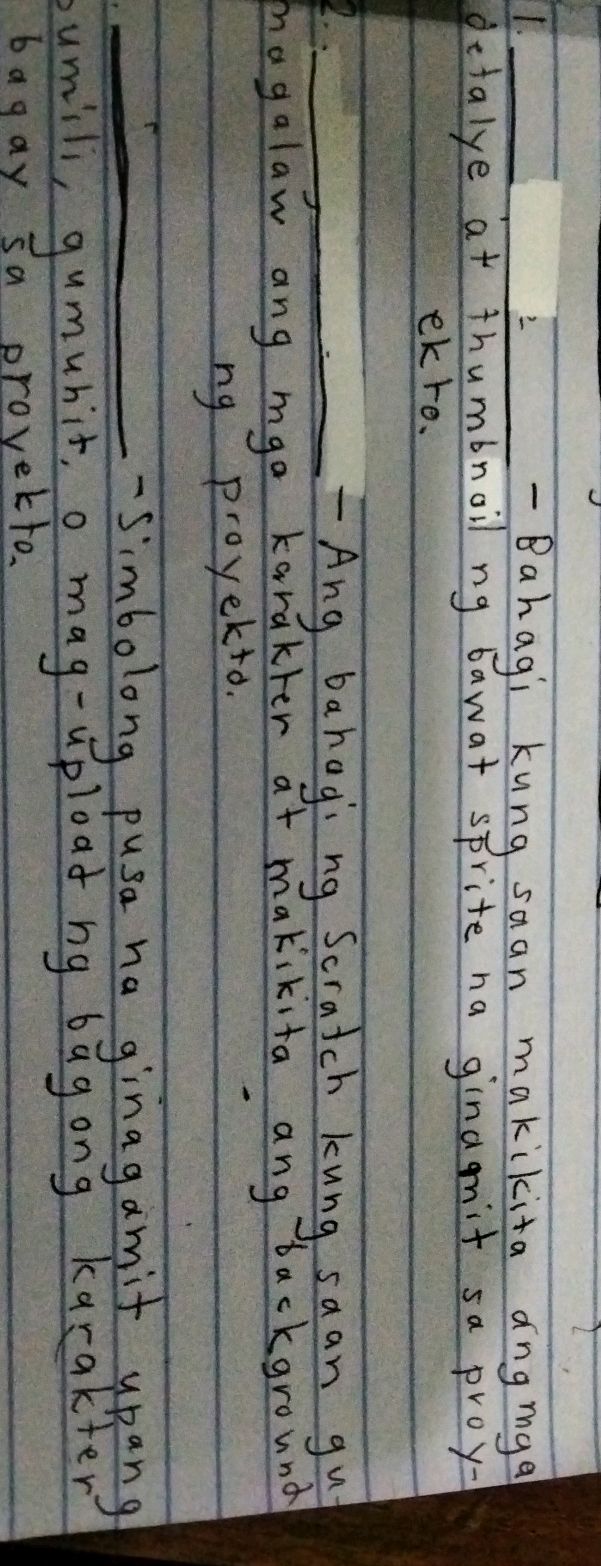 1. - Bahagi kung saan makikita ang mga
detalye at thumbnail ng bawat sprite na ginamit sa proy-
ekto.
2. - Ang bahagi ng Scratch kung saan gu-
magalaw ang mga karakter at makikita ang background
ng proyekto.
- Simbolong pusa na ginagamit upang
pumili, gumuhit, o mag-upload ng bagong karakter
bagay sa proyekto.